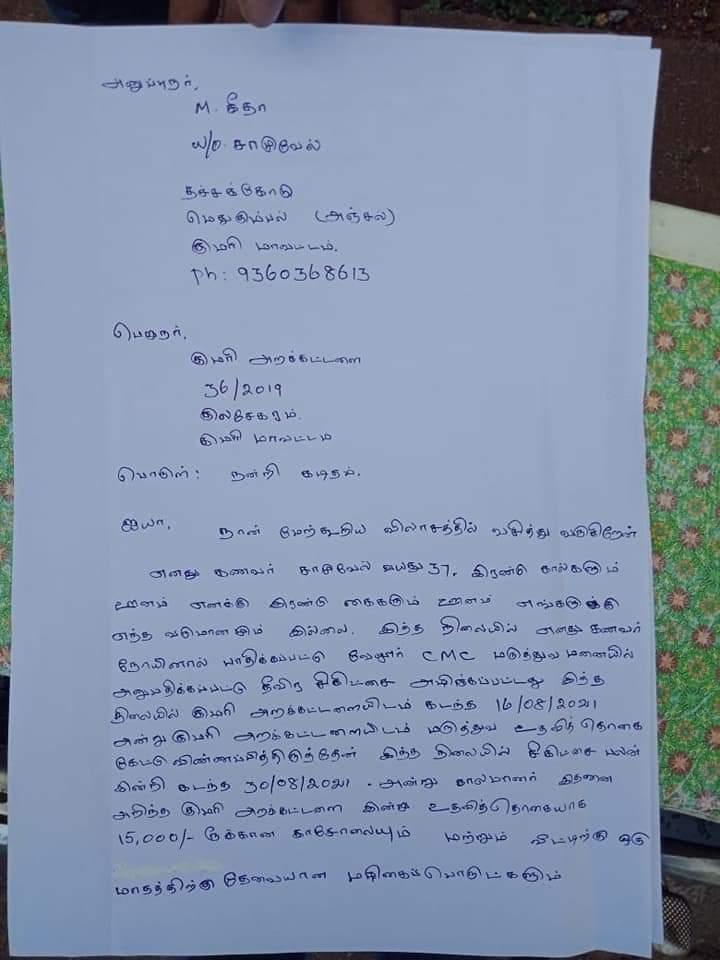 அனுப்புநர்,
M. கீதா
W/O. சாமுவேல்
தச்சக்கோடு
மெதுகும்பல் (அஞ்சல்)
குமரி மாவட்டம்.
ph: 9360368613
பெறுநர்,
குமரி அறக்கட்டளை
36/2019
குலசேகரம்.
குமரி மாவட்டம்
பொருள்: நன்றி கடிதம்.
ஐயா,
நான் மேற்கூறிய விலாசத்தில் வசித்து வருகிறேன்
எனது கணவர் சாமுவேல் வயது 37. இரண்டு கால்களும்
ஊனம் எனக்கு இரண்டு கைகளும் ஊனம் எங்களுக்கு
எந்த வருமானமும் இல்லை. இந்த நிலையில் எனது கணவர்
நோயினால் பாதிக்கப்பட்டு வேலூர் CMC மருத்துவமனையில்
அனுமதிக்கப்பட்டு தீவிர சிகிட்சை அழிக்கப்பட்டது இந்த
நிலையில் குமரி அறக்கட்டளையிடம் கடந்த 16/08/2021
அன்று குமரி அறக்கட்டளையிடம் மருத்துவ உதவித்தொகை
கேட்டு விண்ணப்பித்திருந்தேன் இந்த நிலையில் சிகிட்சை பலன்
இன்றி கடந்த 30/08/2021. அன்று காலமானர் இதனை
அறிந்த குமரி அறக்கட்டளை இன்று உதவித்தொகையாக
15,000/- ரூக்கான காசோலையும் மற்றும் வீட்டிற்கு ஒரு
மாதத்திற்கு தேவையான மழிகைப்பொருட்களும்